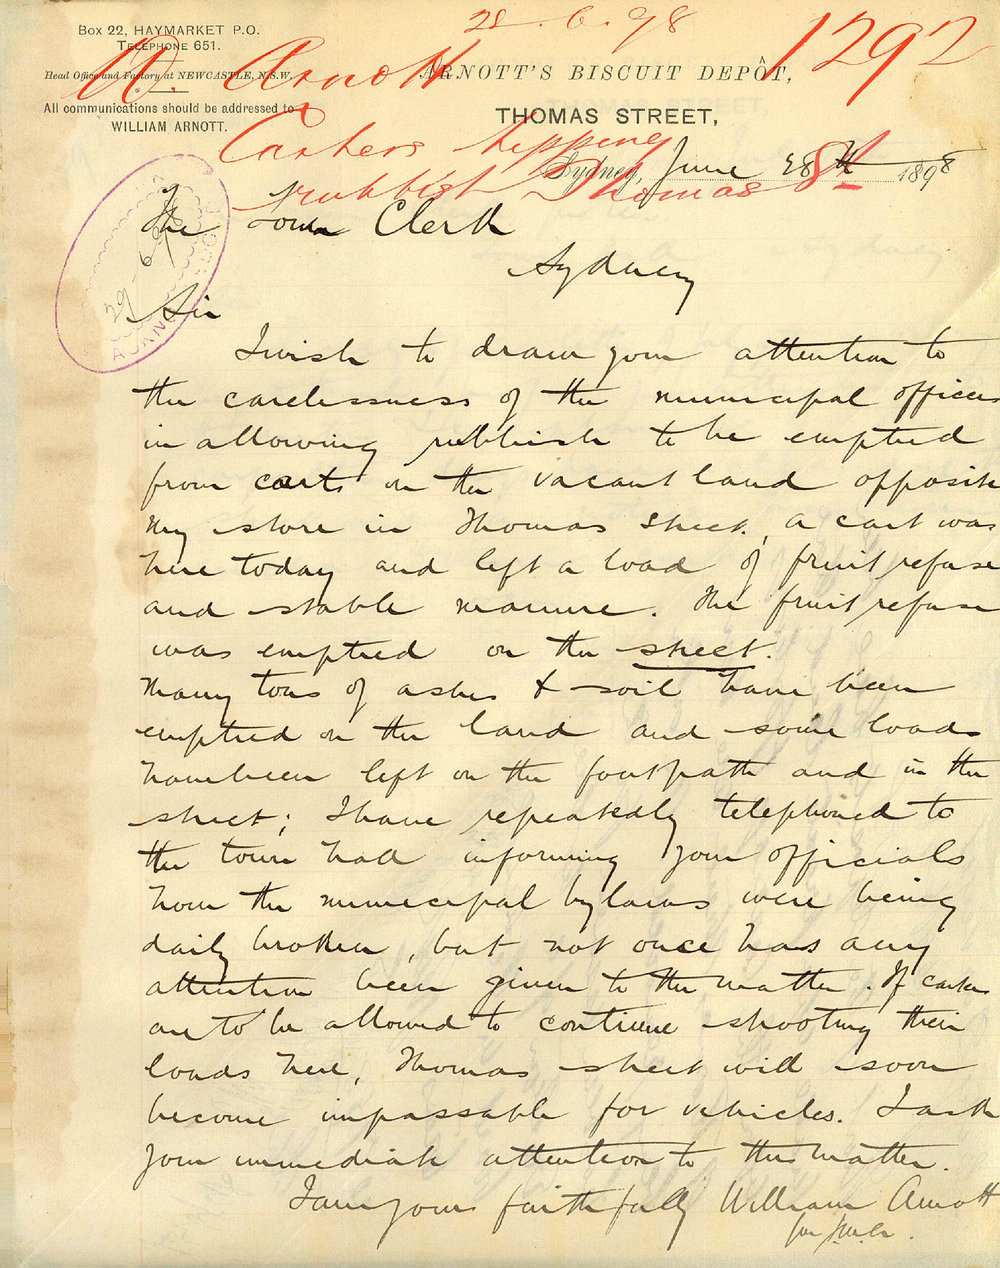 28.6.98
1292
Box 22, HAYMARKET P.O.
TELEPHONE 651.
Head Office and Factory at NEWCASTLE, N.S.W.
All communications should be addressed to
WILLIAM ARNOTT.
W. Arnott
Carters tipping
rubbish Thomas St
ARNOTT'S BISCUIT DEPÔT,
THOMAS STREET,
Sydney, June 28th 1898
29-6-98
The Town Clerk
Sydney
Sir
I wish to draw your attention to
the carelessness of the municipal officers
in allowing rubbish to be emptied
from carts on the vacant land opposite
my store in Thomas Street, a cart was
here today and left a load of fruit refuse
and stable manure. The fruit refuse
was emptied on the street.
Many tons of ashes & soil have been
emptied on the land and some loads
have been left on the footpath and in the
street; I have repeatedly telephoned to
the town hall informing your officials
how the municipal bylaws were being
daily broken, but not once has any
attention been given to the matter. If carters
are to be allowed to continue shooting their
loads here, Thomas street will soon
become impassable for vehicles. I ask
your immediate attention to this matter.
I am yours faithfully William Arnott